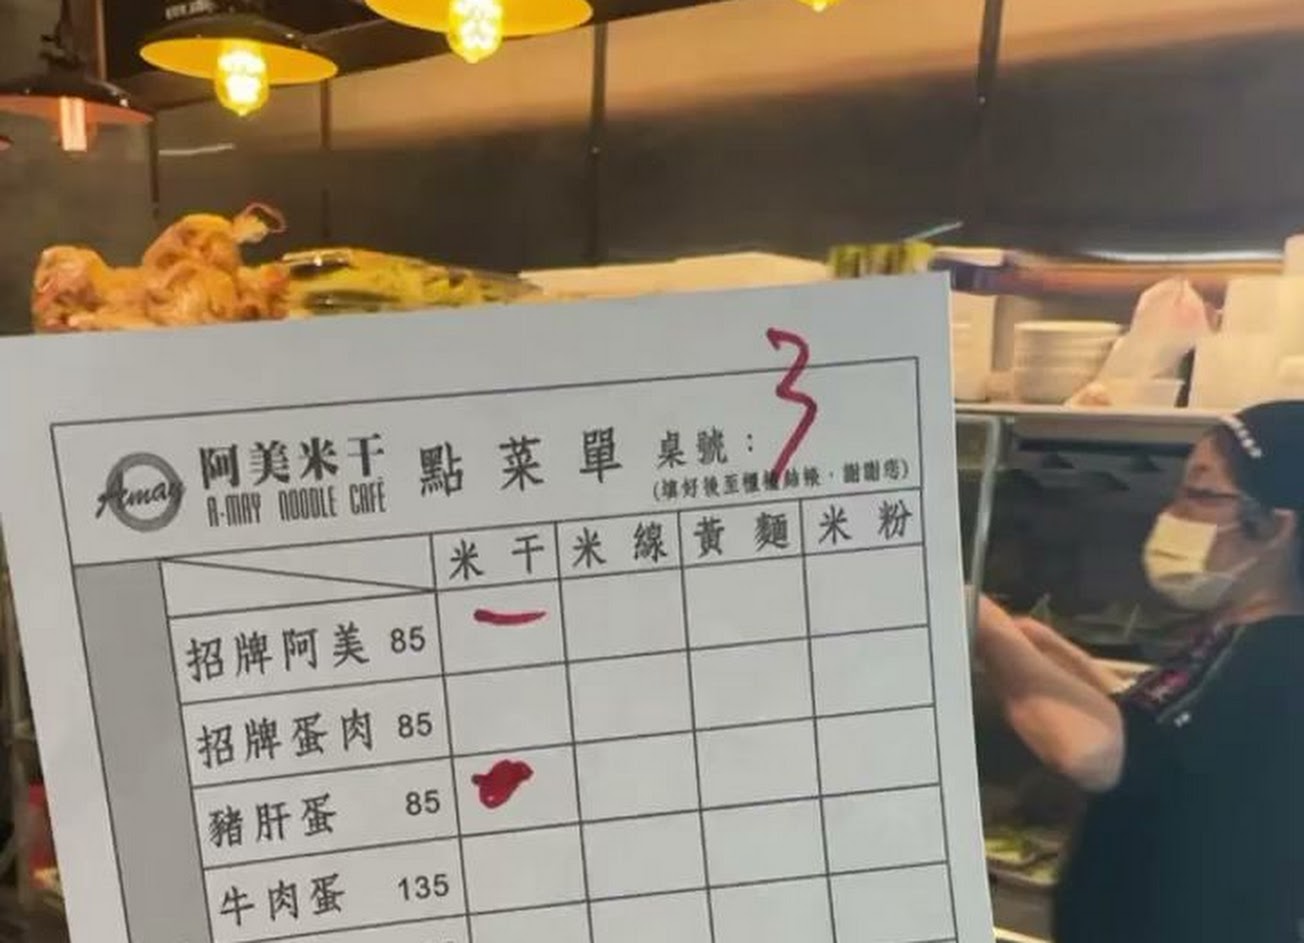 Amay
阿美米干
A-MAY NOODLE CAFÉ
點菜單
桌號：3
(填好後至櫃檯結帳，謝謝您)
米干 米線 黃麵 米粉
招牌阿美 85
招牌蛋肉 85
豬肝蛋 85
牛肉蛋 135